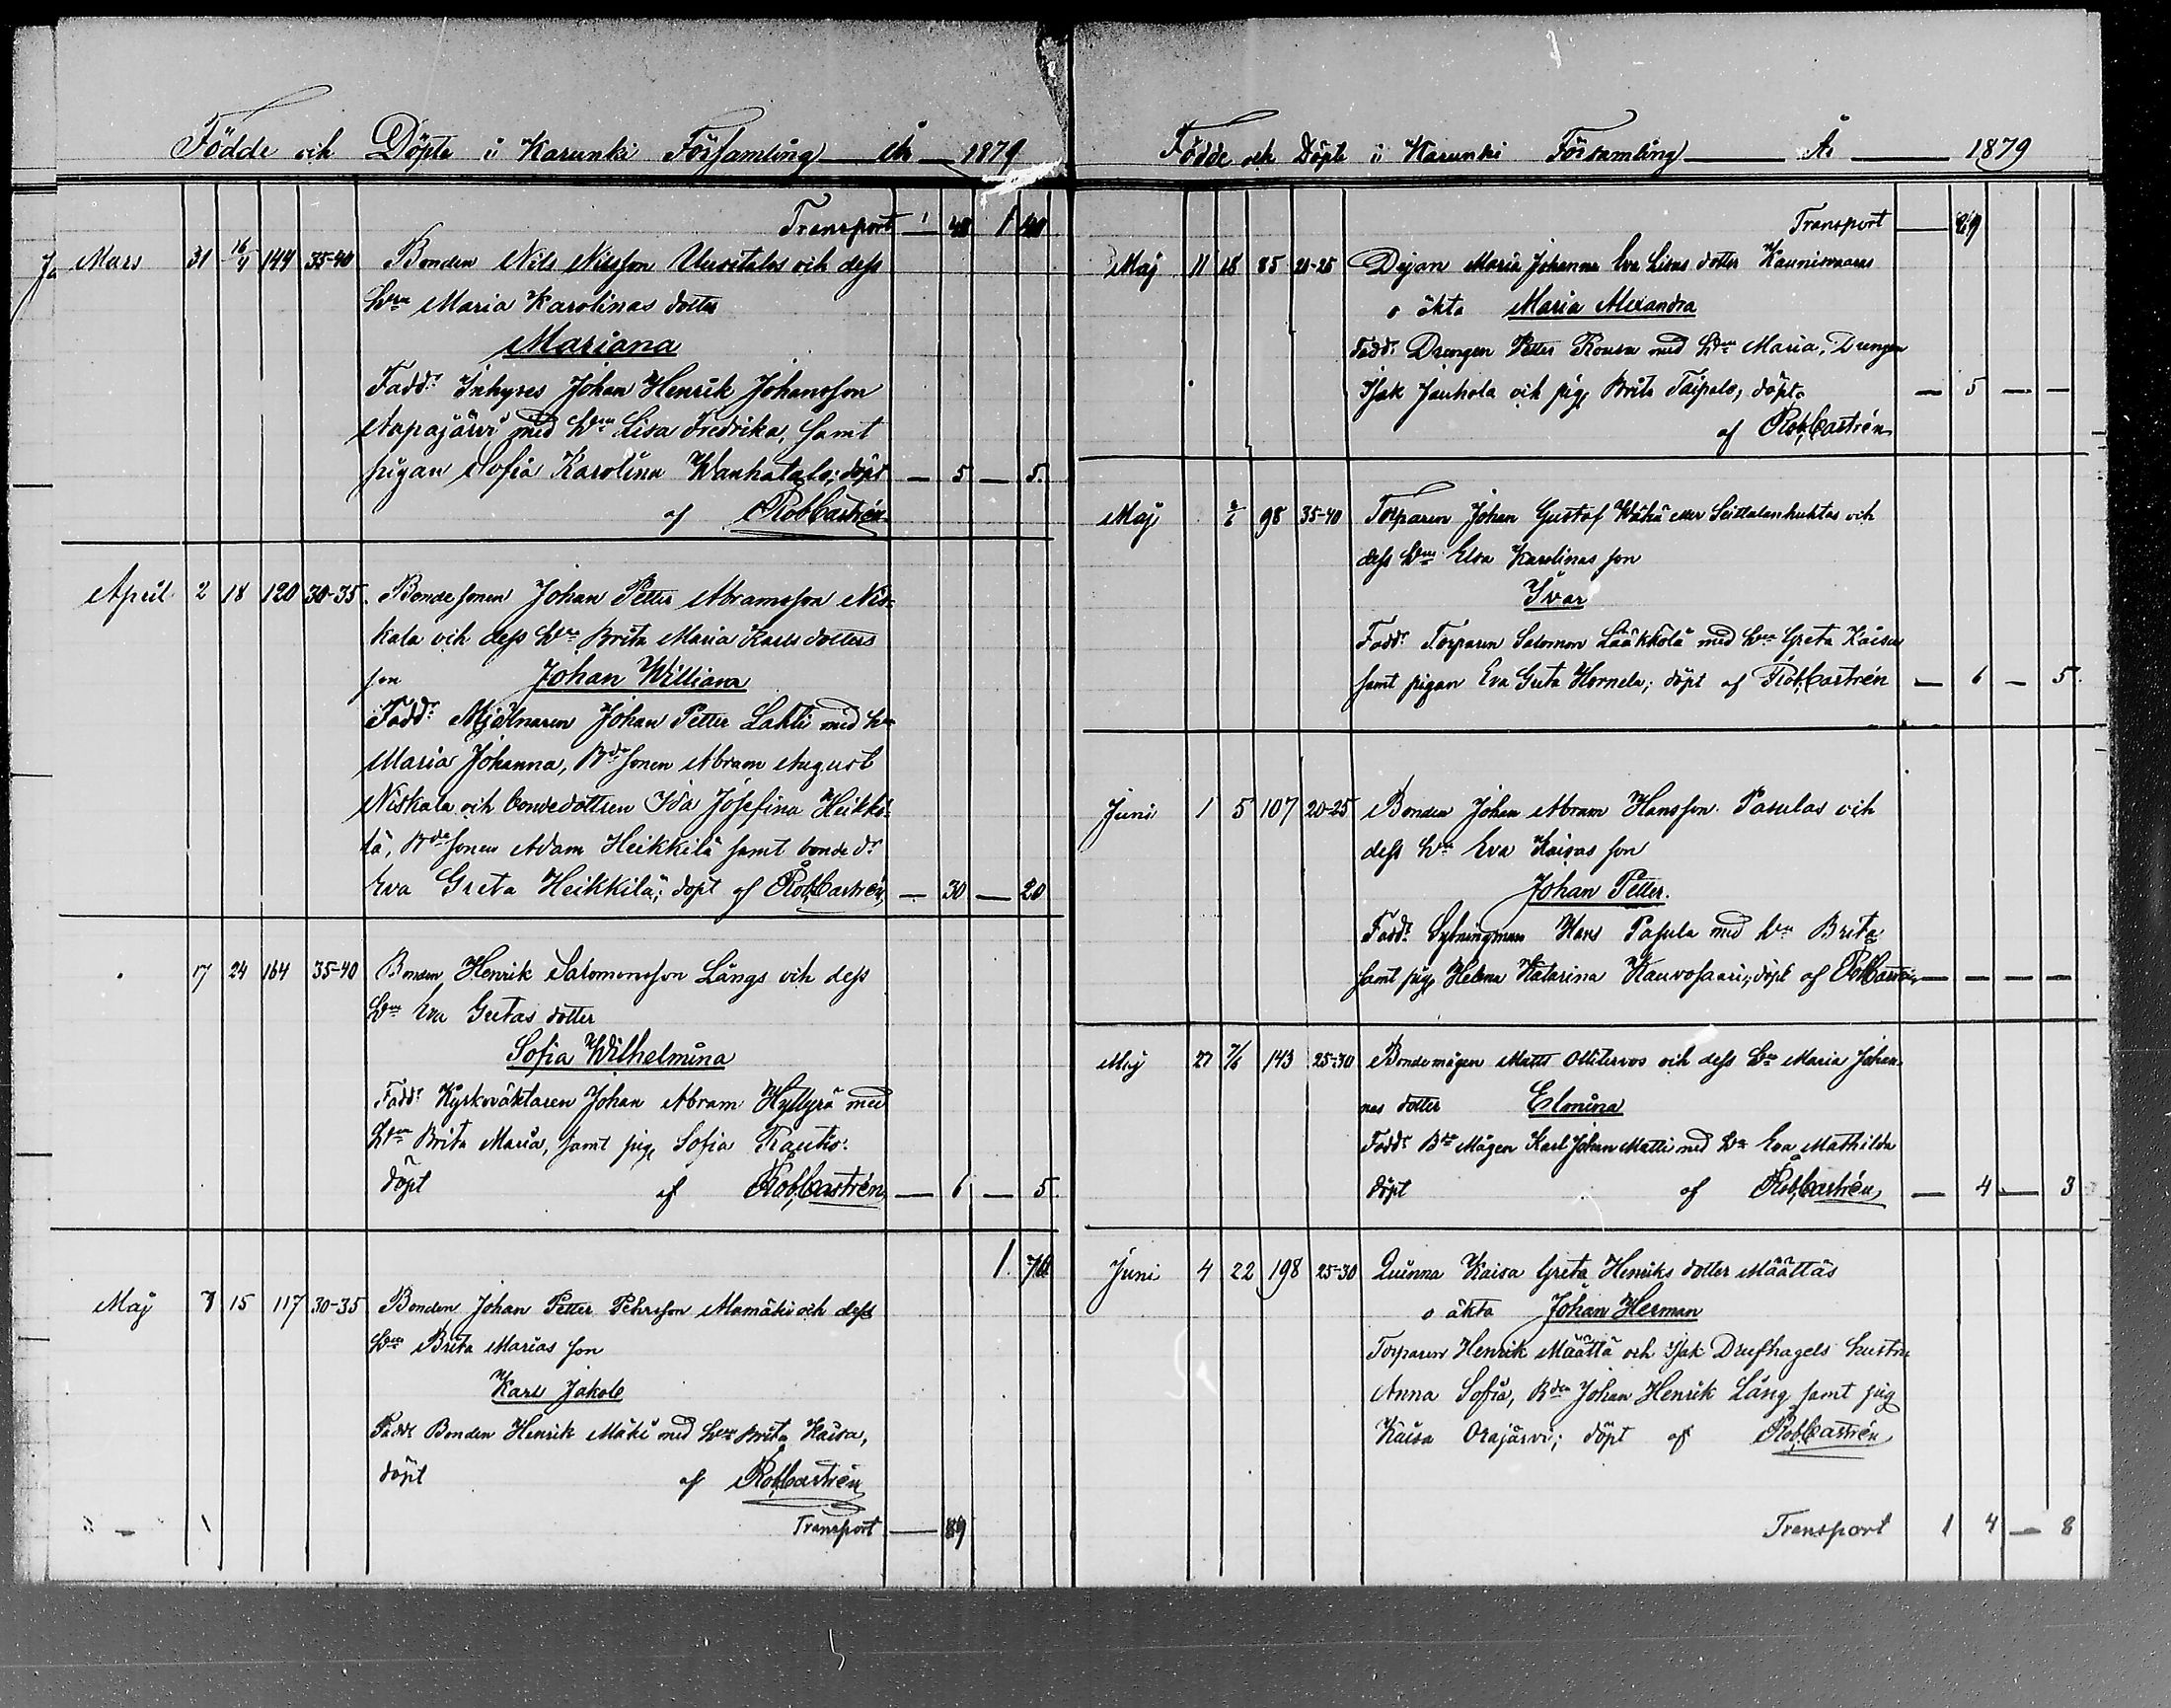 Födde och Döpte i Karunki Församling År 1879
Transport 1 40 1 40
Mars 31 16/4 144 35-40 Bonden Nils Nilsson Uusitalos och dess
hru Maria Karolinas dotter
Mariana
Fadd: Inhyses Johan Henrik Johansson
Napajärvi med hru Lisa Fredrika, samt
pigan Sofia Karolina Wanhatalo; döpt — 5 — 5.
af RobCastrén
April 2 18 120 30-35. Bondesonen Johan Petter Abramsson Nis-
kala och dess hru Brita Maria Karls dotters
son Johan William
Fadd: Mjölnaren Johan Petter Lahti med hru
Maria Johanna, Bdesonen Abram August
Niskala och bondedottren Ida Josefina Heikki-
lä, Bdesonen Adam Heikkilä samt bonde dr
Eva Greta Heikkilä; döpt af RobCastrén — 30 — 20
17 24 164 35-40 Bonden Henrik Salomonsson Längs och dess
hru Eva Gretas dotter
Sofia Wilhelmina
Fadd: Kyrkoväktaren Johan Abram Hyllyrä med
hru Brita Maria, samt pig Sofia Rautio:
döpt af RobCastrén — 6 — 5.
1. 70
Maj 7 15 117 30-35 Bonden Johan Petter Pehrsson Alamäki och dess
hru Brita Marias son
Karl Jakob
Fadd: Bonden Henrik Mäki med hru Brita Kaisa,
döpt af RobCastrén
Transport — 89
Födde och Döpte i Karunki Församling År 1879
Transport — 89
Maj 11 18 85 20-25 Dejan Maria Johanna Eva Lisas dotter Kaunisvaaras
o äkta Maria Alexandra
Fadd: Drengen Petter Rousu med hru Maria, Drengen
Isak Jauhola och pig Brita Taipalo, döpt — 5 — —
af RobCastrén
Maj 2/6 98 35-40 Torparen Johan Gustaf Wähä eller Seittalanhuhtas och
dess hru Elsa Karolinas son
Ivar
Fadd: Torparen Salomon Lääkkölä med hru Greta Kaisa
samt pigan Eva Greta Hornela; döpt af RobCastrén — 6 — 5.
Juni 1 5 107 20-25 Bonden Johan Abram Hansson Pasulas och
dess hru Eva Kaisas son
Johan Petter.
Fadd: Sytningman Hans Pasula med hru Brita
samt pig Helena Katarina Kauvosaari; döpt af RobCastrén — — — —
Maj 27 7/6 143 25-30 Bondemågen Matts Ollitervos och dess hru Maria Johan-
nas dotter Elmina
Fadd: Bde Mågen Karl Johan Matti med hru Eva Mathilda
döpt af RobCastrén — 4 — 3
Juni 4 22 198 25-30 Qvinna Kaisa Greta Henriks dotter Määttäs
o äkta Johan Herman
Torparen Henrik Määttä och Isak Drufhagels hustru
Anna Sofia, Bden Johan Henrik Läng samt pig
Kaisa Orajärvi; döpt af RobCastrén
Transport 1 4 — 8